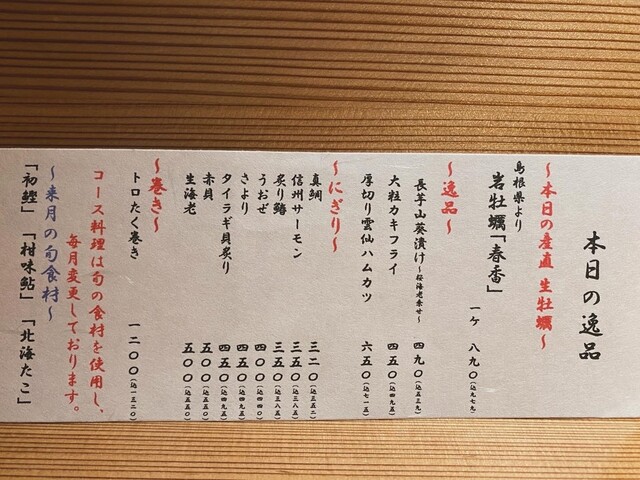 本日の逸品
～本日の産直 生牡蠣～
島根県より
岩牡蠣「春香」 一ケ 八九〇(込九七九)
～逸品～
長芋山葵漬け～桜海老乗せ～ 四九〇(込五三九)
大粒カキフライ 四五〇(込四九五)
厚切り雲仙ハムカツ 六五〇(込七一五)
～にぎり～
真鯛 三二〇(込三五二)
信州サーモン 三五〇(込三八五)
炙り鰆 三五〇(込三八五)
うおぜ 四〇〇(込四四〇)
さより 四五〇(込四九五)
タイラギ貝炙り 四五〇(込四九五)
赤貝 五〇〇(込五五〇)
生海老 五〇〇(込五五〇)
～巻き～
トロたく巻き 一二〇〇(込一三二〇)
コース料理は旬の食材を使用し、
毎月変更しております。
～来月の旬食材～
「初鰹」「柑味鮎」「北海たこ」